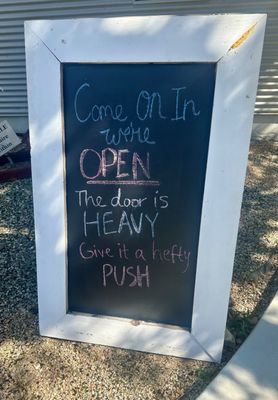 Come On In
we're
OPEN
The door is
HEAVY
Give it a hefty
PUSH